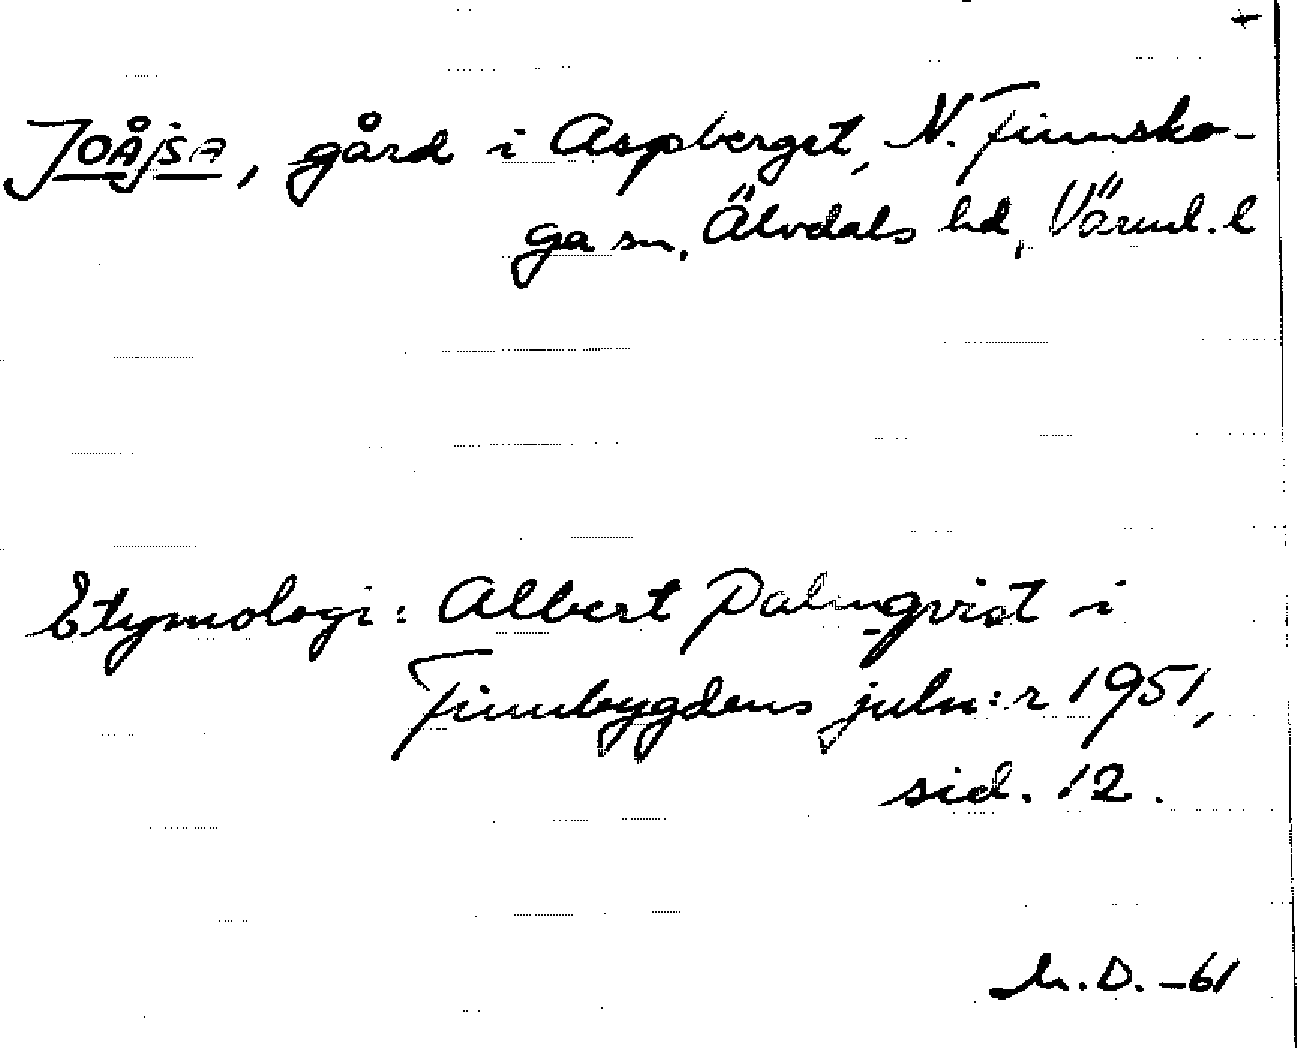 Joåjsa, gård i Aspberget, N. Finnsko-
ga sn, Älvdals hd, Värml. l
Etymologi: Albert Palmqvist i
Finnbygdens juln:r 1951,
sid. 12.
D. -61